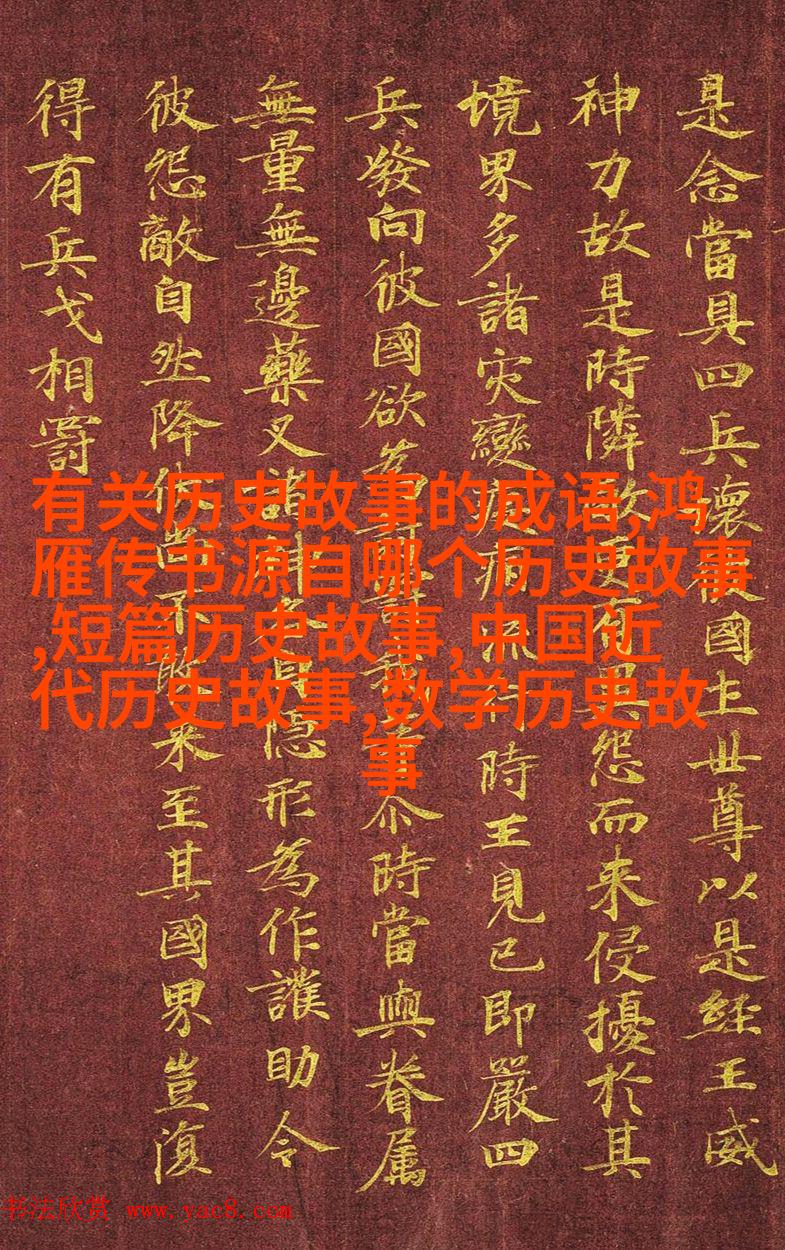 是念當具四兵壞彼國土世尊以是經王威
神力故是時隣敵更有異怨而来侵擾於其
境界多諸灾變疫病流行時王見已即嚴四
兵發向彼國欲為討罰我等尒時當與眷属
無量無邊藥叉諸神各自隱形為作護助令
彼怨敵自然降伏尚不敢来至其國界豈復
得有兵戈相罰
有关历史故事的成语,鸿
雁传书源自哪个历史故事
,短篇历史故事,中国近
代历史故事,数学历史故
事
书法欣赏 www.yac8.com